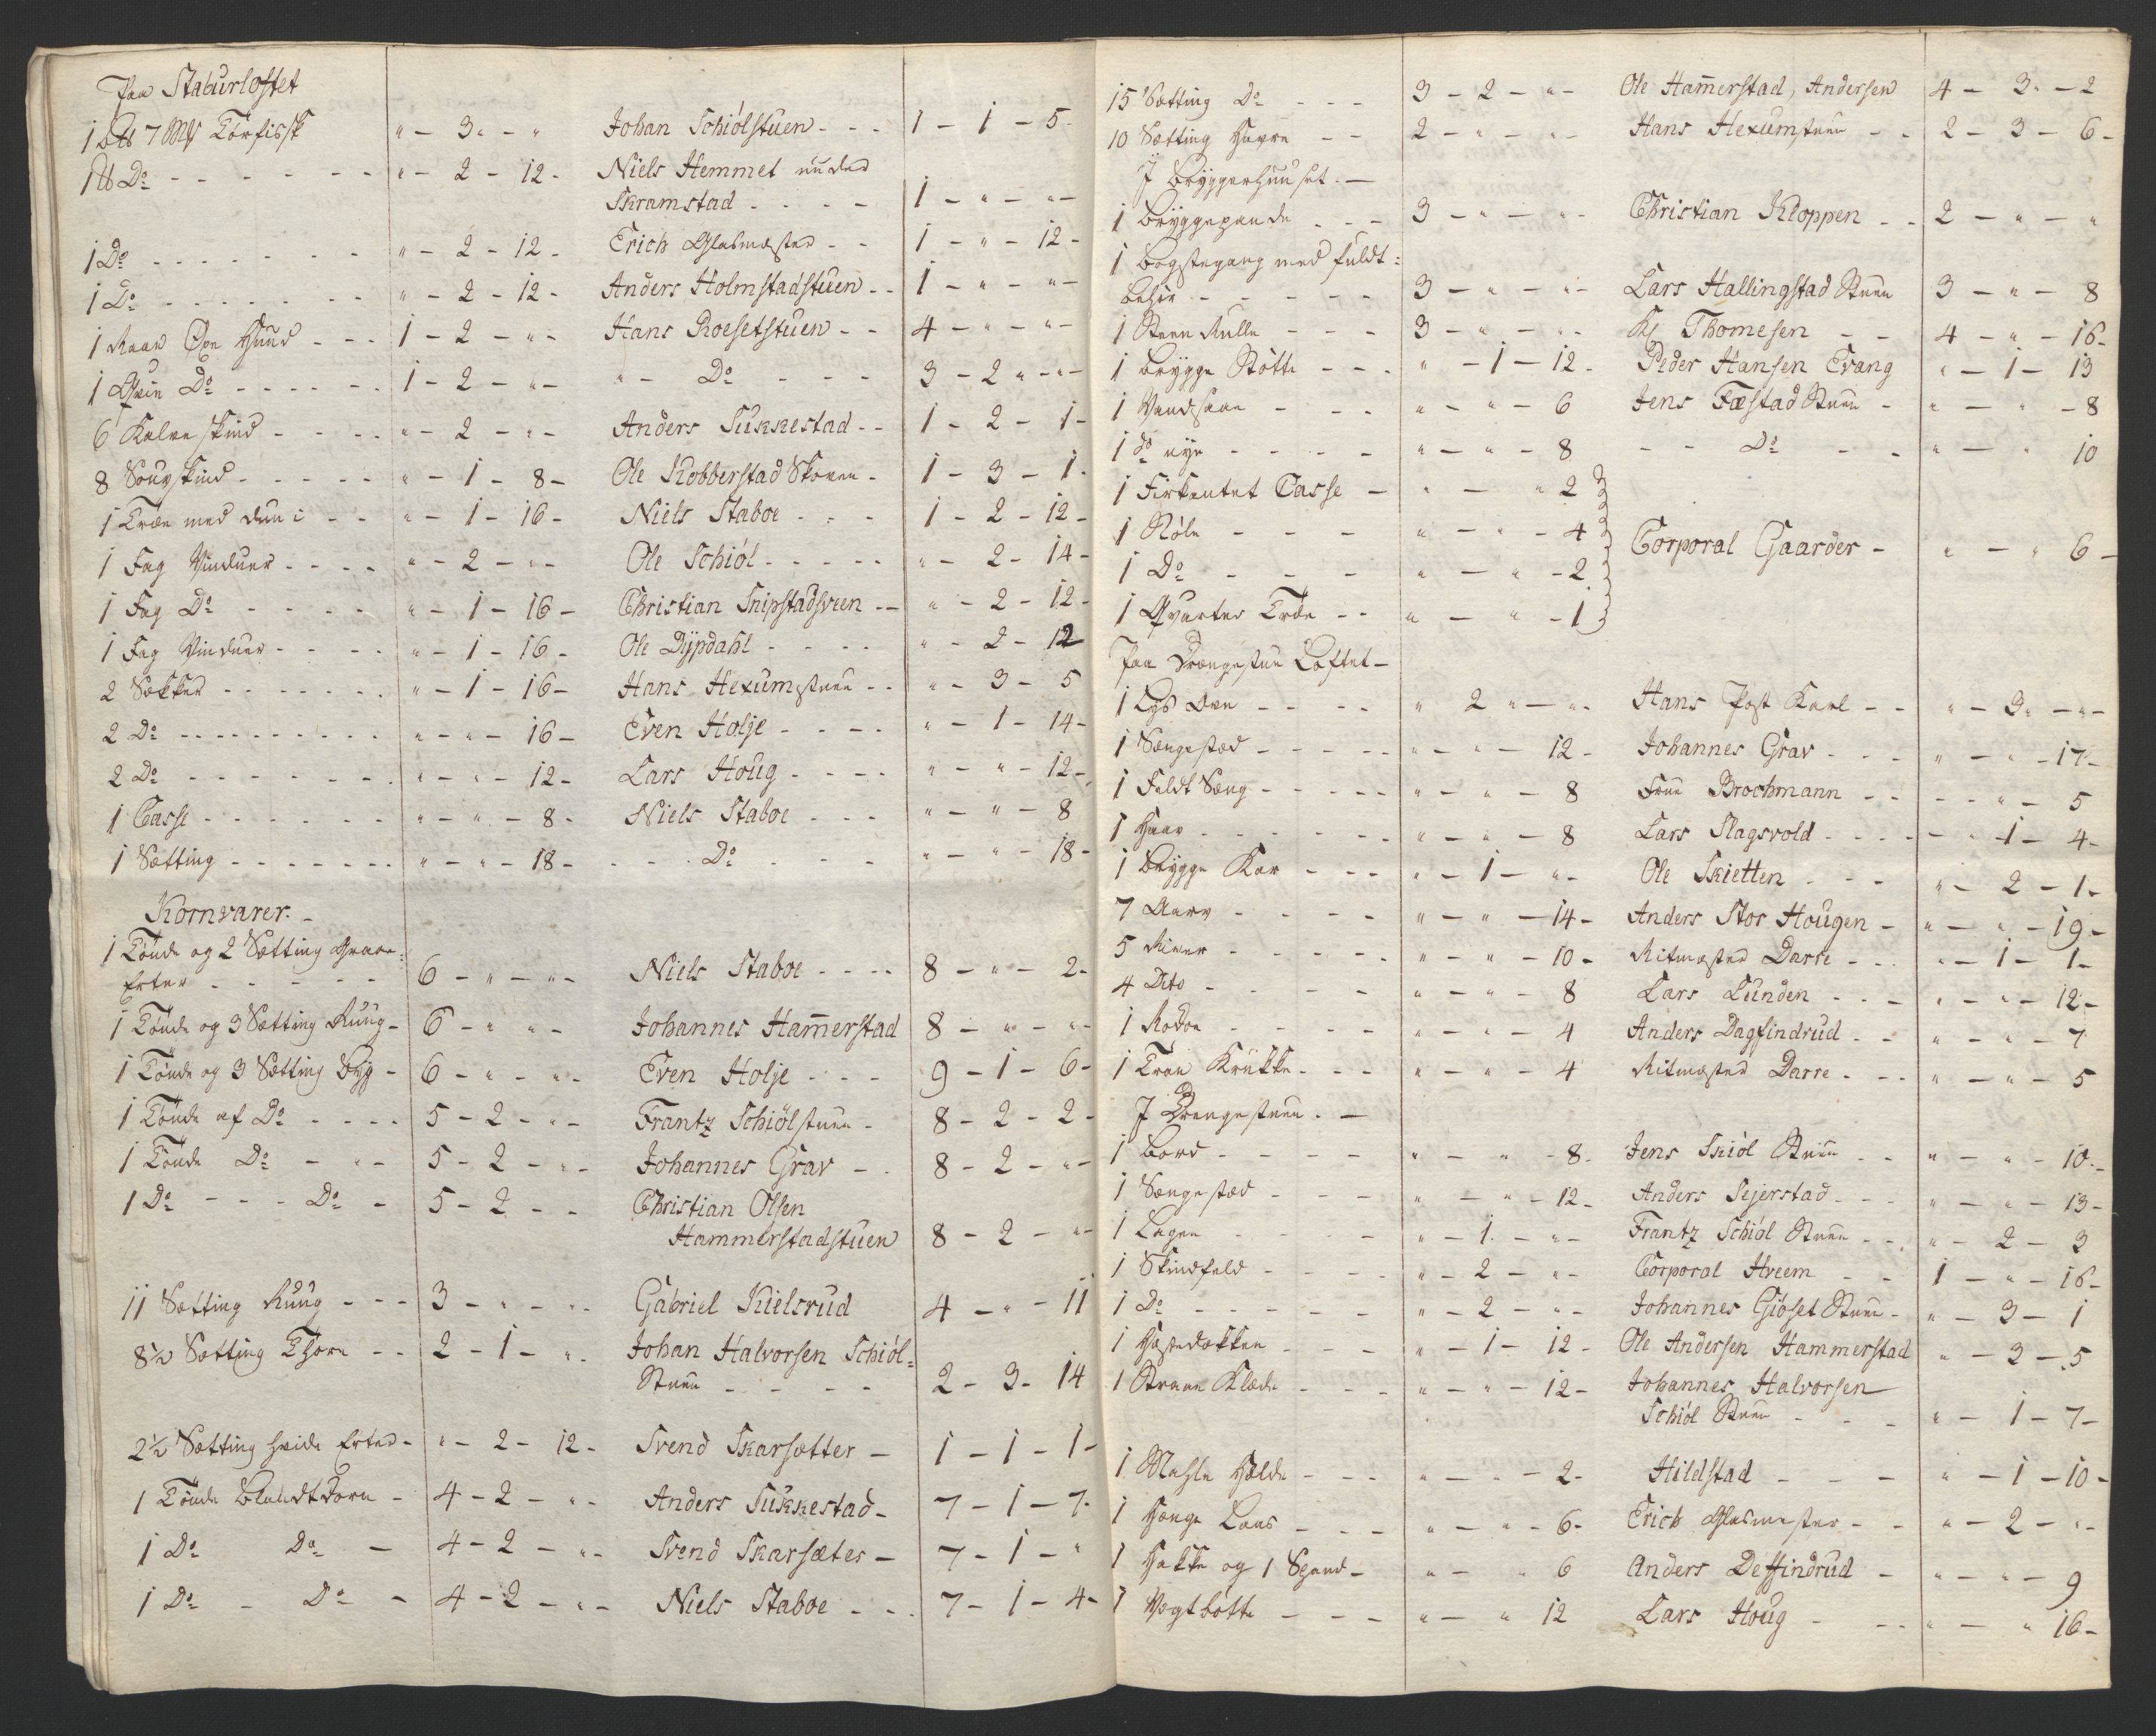 Paa Staburloftet
1 Bs 7 Mk Törfissk " - 3 - " Johan Schiölstuen - - - 1 - 1 - 5
1 Do - - - - - " - 2 - 12 - Niels Hemmet under
Skramstad - - - - 1 - " - "
1 Do - - - - - " - 2 - 12 - Erich Glasmæster - - 1 - " - 12 -
1 Do - - - - - " - 2 - 12 - Anders Holmstadstuen - - 1 - " - "
1 Raae Oxe Huud - - - 1 - 2 - " - Hans Roesetstuen - - 4 - " - "
1 Qvie Do - - - - - 1 - 2 - " - " - Do - - - 3 - 2 - "
6 Kalve skind - - - - " - 2 - " - Anders Sukkestad - - 1 - 2 - 1 -
8 Souvskind - - - - - " - 1 - 8 - Ole Kobberstad Skoven - 1 - 3 - 1 -
1 Træe med dun i - - " - 1 - 16 - Niels Staboe - - - 1 - 2 - 12 -
1 Fag Vinduer - - - - " - 2 - " - Ole Schiöl - - - - - " - 2 - 14 -
1 Fag Do - - - - - " - 1 - 16 - Christian Snipstadsveen - - " - 2 - 12 -
1 Fag Vinduer - - - - " - 1 - 16 - Ole Dypdahl - - - - " - 2 - 12
2 Sækker - - - - - - " - 1 - 16 - Hans Hexumstuen - - " - 3 - 5
2 Do - - - - - - - " - " - 16 - Even Holje - - - - " - 1 - 14 -
2 Do - - - - - - - " - " - 12 - Lars Houg - - - - " - " - 12 -
1 Casse - - - - - - " - " - 8 - Niels Staboe - - - " - " - 8
1 Sætting - - - - - - " - " - 18 - - - Do - - - " - " - 18 -
Kornvarer. -
1 Tönde og 2 Sætting Graae
Erter - - - - - 6 - " - " - Niels Staboe - - - - 8 - " - 2 -
1 Tönde og 3 Sætting Ruug - 6 - " - " - Johannes Hammerstad 8 - " - "
1 Tönde og 3 Sætting Byg - 6 - " - " - Even Holje - - - 9 - 1 - 6 -
1 Tönde af Do - - - - 5 - 2 - " - Frantz Schiölstuen - 8 - 2 - 2 -
1 Tönde Do - " - 5 - 2 - " - Johannes Grav - - 8 - 2 - "
1 Do - - - Do - 5 - 2 - - Christian Olsen
Hammerstadstuen 8 - 2 - "
11 Sætting Ruug - - - 3 - " - " - Gabriel Kielsrud 4 - " - 11
8½ Sætting - - 2 - 1 - " - Johan Halvorsen Schiöl-
Stuen - - - - 2 - 3 - 14
2½ Sætting hvide Erter - " - 2 - 12 - Svend Skarsætter - 1 - 1 - 1 -
1 Tönde Blandkorn - 4 - 2 - " - Anders Sukkestad - 7 - 1 - 7 -
1 Do Do - 4 - 2 - " - Svend Skarsæter - 7 - 1 - "
1 Do - Do - 4 - 2 - " - Niels Staboe - - - 7 - 1 - 4 -
15 Sætting Do - - - 3 - 2 - " - Ole Hammerstad, Andersen 4 - 3 - 2
10 Sætting Havre - - 2 - " - " - Hans Hexumstuen - - 2 - 3 - 6 -
I Bryggerhuuset. -
1 Bryggepande - - - 3 - " - " - Christian Kloppen - - 2 - " - "
1 med fuldt:
behör - - - - - 3 - " - " - Lars Hallingstad Stuen 3 - " - 8
1 Steen Rulle - - - 3 - " - " - Thomesen - 4 - " - 16 -
1 Brygge Bötte - - - " - 1 - 12 - Peder Hansen Evang " - 1 - 13
1 Vandsaae - - - - " - " - 6 Jens Fæstad Stuen - " - " - 8
1 do nye - - - - " - " - 8 - - Do - - " - " 10
1 Firkantet Casse - " - " 2
1 - - - " - " - 4 Corporal Gaarder - " - " 6 -
1 Do - - - " - " - 2
1 Qvarter - - " - " - 1
Paa Drængestue Loftet -
1 - - - - " 2 " - " - Hans Post Karl - - " - 3 - "
1 Sængestæd - - - - " - " - 12 - Johannes Grav - - - " - " - 17 -
1 Feldt Sæng - - - - - " - " - 8 Brochmann - - - " - 5
1 - - - - - - " - " - 8 Lars Slagsvold - - - - - 1 - 4 -
1 Brygge Kar - - - " - 1 - " - Ole Skietten - - - " - 2 - 1 -
7 - - - - " - " - 14 - Anders Stor Hougen - " - " - 19 -
5 River - - - - - " - " - 10 - Ritmæster Darre - - - " - 1 - 1 -
4 Dito - - - - - " - " - 8 Lars Lunden - - - " - " - 12 -
1 - - - - - " - " - 4 Anders Dagfindrud - - " - " - 7
1 Træe Krükke - - - " - " - 4 Ritmæster Darre - - - " - " - 5
I Drengestuen. -
1 Bord - - - - " - " - 8 - Jens Skiöl Stuen - - " - " - 10 -
1 Sængestæd - - - " - " - 12 - Anders Sejerstad - - - " - " - 13 -
1 Lagen - - - - " - 1 - " - Frantz Schiöl Stuen - - " - 2 - 3
1 Skindfeld - - - - " - 2 - " - Corporal Hveem - - 1 - " - 16 -
1 Do - - - - - " - 2 - " - Johannes Giöset Stuen - " - 3 - 1
1 Hestedækken - - - " - 1 - 12 - Ole Andersen Hammerstad " - 3 - 5
1 Klæde - - - " - " - 12 - Johannes Halvorsen
Schiöl Stuen - - - " - 1 - 7 -
1 - - - " - " - 2 - Hildstad - - - " - 1 - 10 -
1 Hænge Laas - - - " - " - 6 - Erich Glasmester - - " - 2 - " -
1 Hakke og 1 Spand - " - " 6 Anders Deffindrud - " - " - 9
1 Vægtbötte - - - " - " 12 Lars Houg - - - " - " 16 -